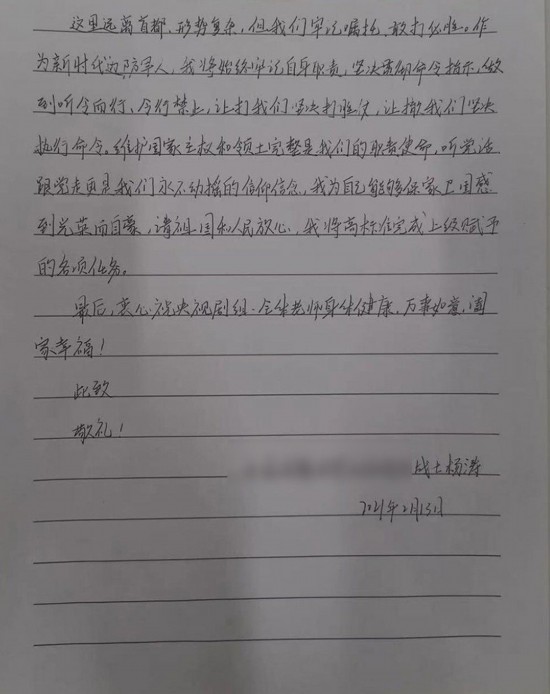 这里远离首都，形势复杂，但我们牢记嘱托，敢打必胜。作
为新时代边防军人，我将始终牢记自身职责，坚决贯彻命令指示，做
到听令而行、令行禁止，让打我们坚决打胜仗，让撤我们坚决
执行命令。维护国家主权和领土完整是我们的职责使命，听党话
跟党走更是我们永不动摇的信仰信念，我为自己能够保家卫国感
到光荣而自豪，请祖国和人民放心，我将高标准完成上级赋予
的各项任务。
最后，衷心祝央视剧组全体老师身体健康，万事如意，阖
家幸福！
此致
敬礼！
战士杨涛
2021年2月13日